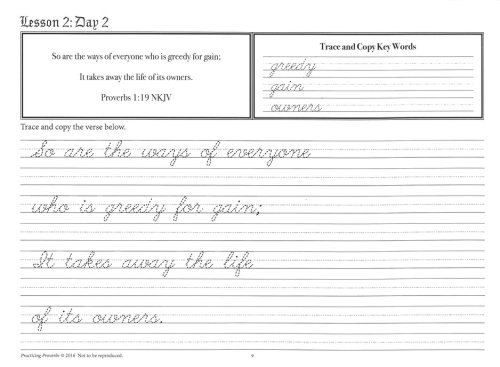 Lesson 2: Day 2
So are the ways of everyone who is greedy for gain;
It takes away the life of its owners.
Proverbs 1:19 NKJV
Trace and Copy Key Words
greedy
gain
owners
Trace and copy the verse below.
So are the ways of everyone
who is greedy for gain;
It takes away the life
of its owners.
Practicing Proverbs © 2016 Not to be reproduced.
9